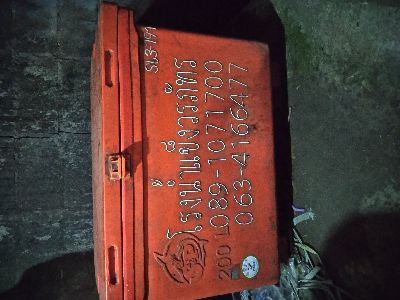 SL3-191
โรงน้ำแข็งวรภัทร
200 L
089-1071700
063-4166477